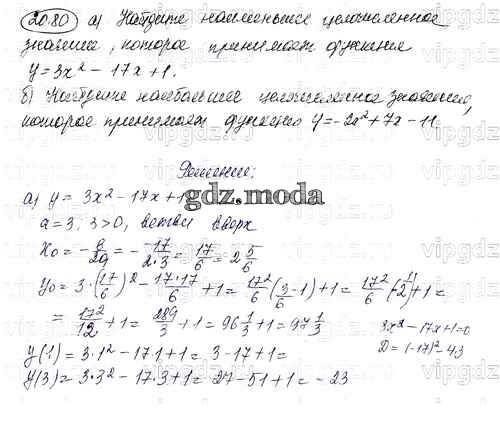 20.80 а) Найдите наименьшее целочисленное
значение, которое принимает функция
y = 3x² - 17x + 1.
б) Найдите наибольшее целочисленное значение,
которое принимает функция y = -2x² + 7x - 11.
Решение:
а) y = 3x² - 17x + 1
a = 3, 3 > 0, ветви вверх
x₀ = -b/2a = - -17/2·3 = 17/6 = 2 5/6
y₀ = 3·(17/6)² - 17·17/6 + 1 = 17²/6 (3/6 - 1) + 1 = 17²/6 (-1/2) + 1 =
= 17²/12 + 1 = 289/3 + 1 = 96 1/3 + 1 = 97 1/3
3x² - 17x + 1 = 0
D = (-17)² - 4·3
y(1) = 3·1² - 17·1 + 1 = 3 - 17 + 1 =
y(3) = 3·3² - 17·3 + 1 = 27 - 51 + 1 = -23
gdz.moda
vipgdz